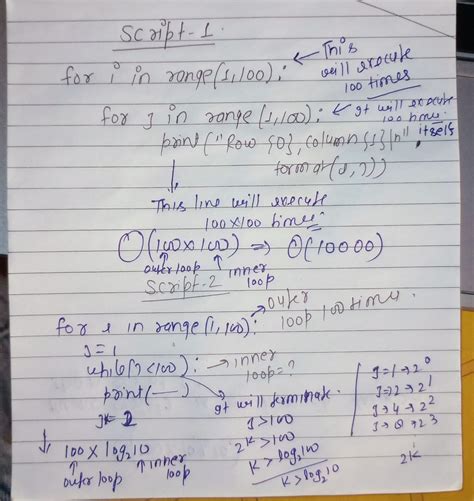 Script-1
for i in range(1,100): ← This will execute 100 times
for j in range(1,100): ← It will execute 100 times itself
print("Row {0}, column {1}\n".
format(i,j))
↓
This line will execute
100x100 times:
O(100x100) => O(10000)
↑ outer loop ↑ inner loop
Script-2
for i in range(1,100): → outer loop 100 times.
J=1
while(J<100): → inner loop=?
print(—)
J*=2
It will terminate.
J>100
2K>100
K>log₂100
K>log₂10
J=1→2⁰
J=2→2¹
J→4→2²
J→8→2³
2K
↓ 100 x log₂10
↑ outer loop ↑ inner loop